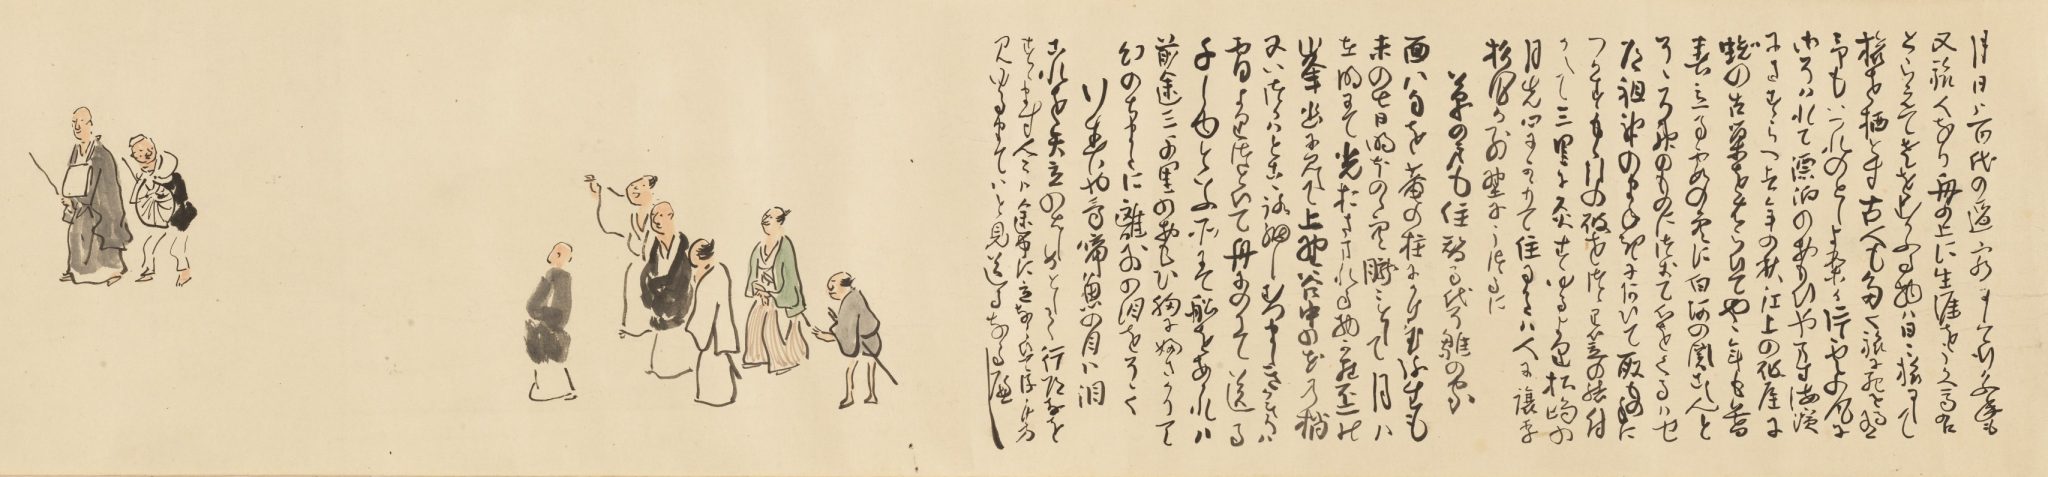 月日は百代の過客にして行かふ年も
又旅人なり舟の上に生涯をうかへ馬の口
とらえて老をむかふる物は日々旅にして
旅を栖とす古人も多く旅に死せるあり
予もいつれのとしよりか片雲の風に
さそはれて漂泊のおもひやます海濱
にさすらへ去年の秋江上の破屋に
蜘の古巣をはらひてやゝ年も暮
春立る霞の空に白河の関こえんと
そゝろ神のものにつきて心をくるはせ
道祖神のまねきにあひて取もの手に
つかすもゝ引の破をつゝり笠の緒付
かへて三里に灸すゆるより松嶋の
月先心にかゝりて住る方は人に譲り
杉風か別墅にうつるに
草の戸も住替る代そ雛の家
面八句を菴の柱にかけ置弥生も
末の七日明ほのゝ空朧々として月は
在明にて光おさまれる物から不二の
峯幽に見えて上野谷中の花の梢
又いつかはと心細しむつましきかきりは
宵よりつとひて舟にのりて送る
千しゆといふ所にて船をあかれは
前途三千里のおもひ胸にふさかりて
幻のちまたに離別の泪をそゝく
行春や鳥啼魚の目は泪
これを矢立の初として行道なを
すゝます人々は途中に立ならひて
見ゆるまてはと見送るなるへし